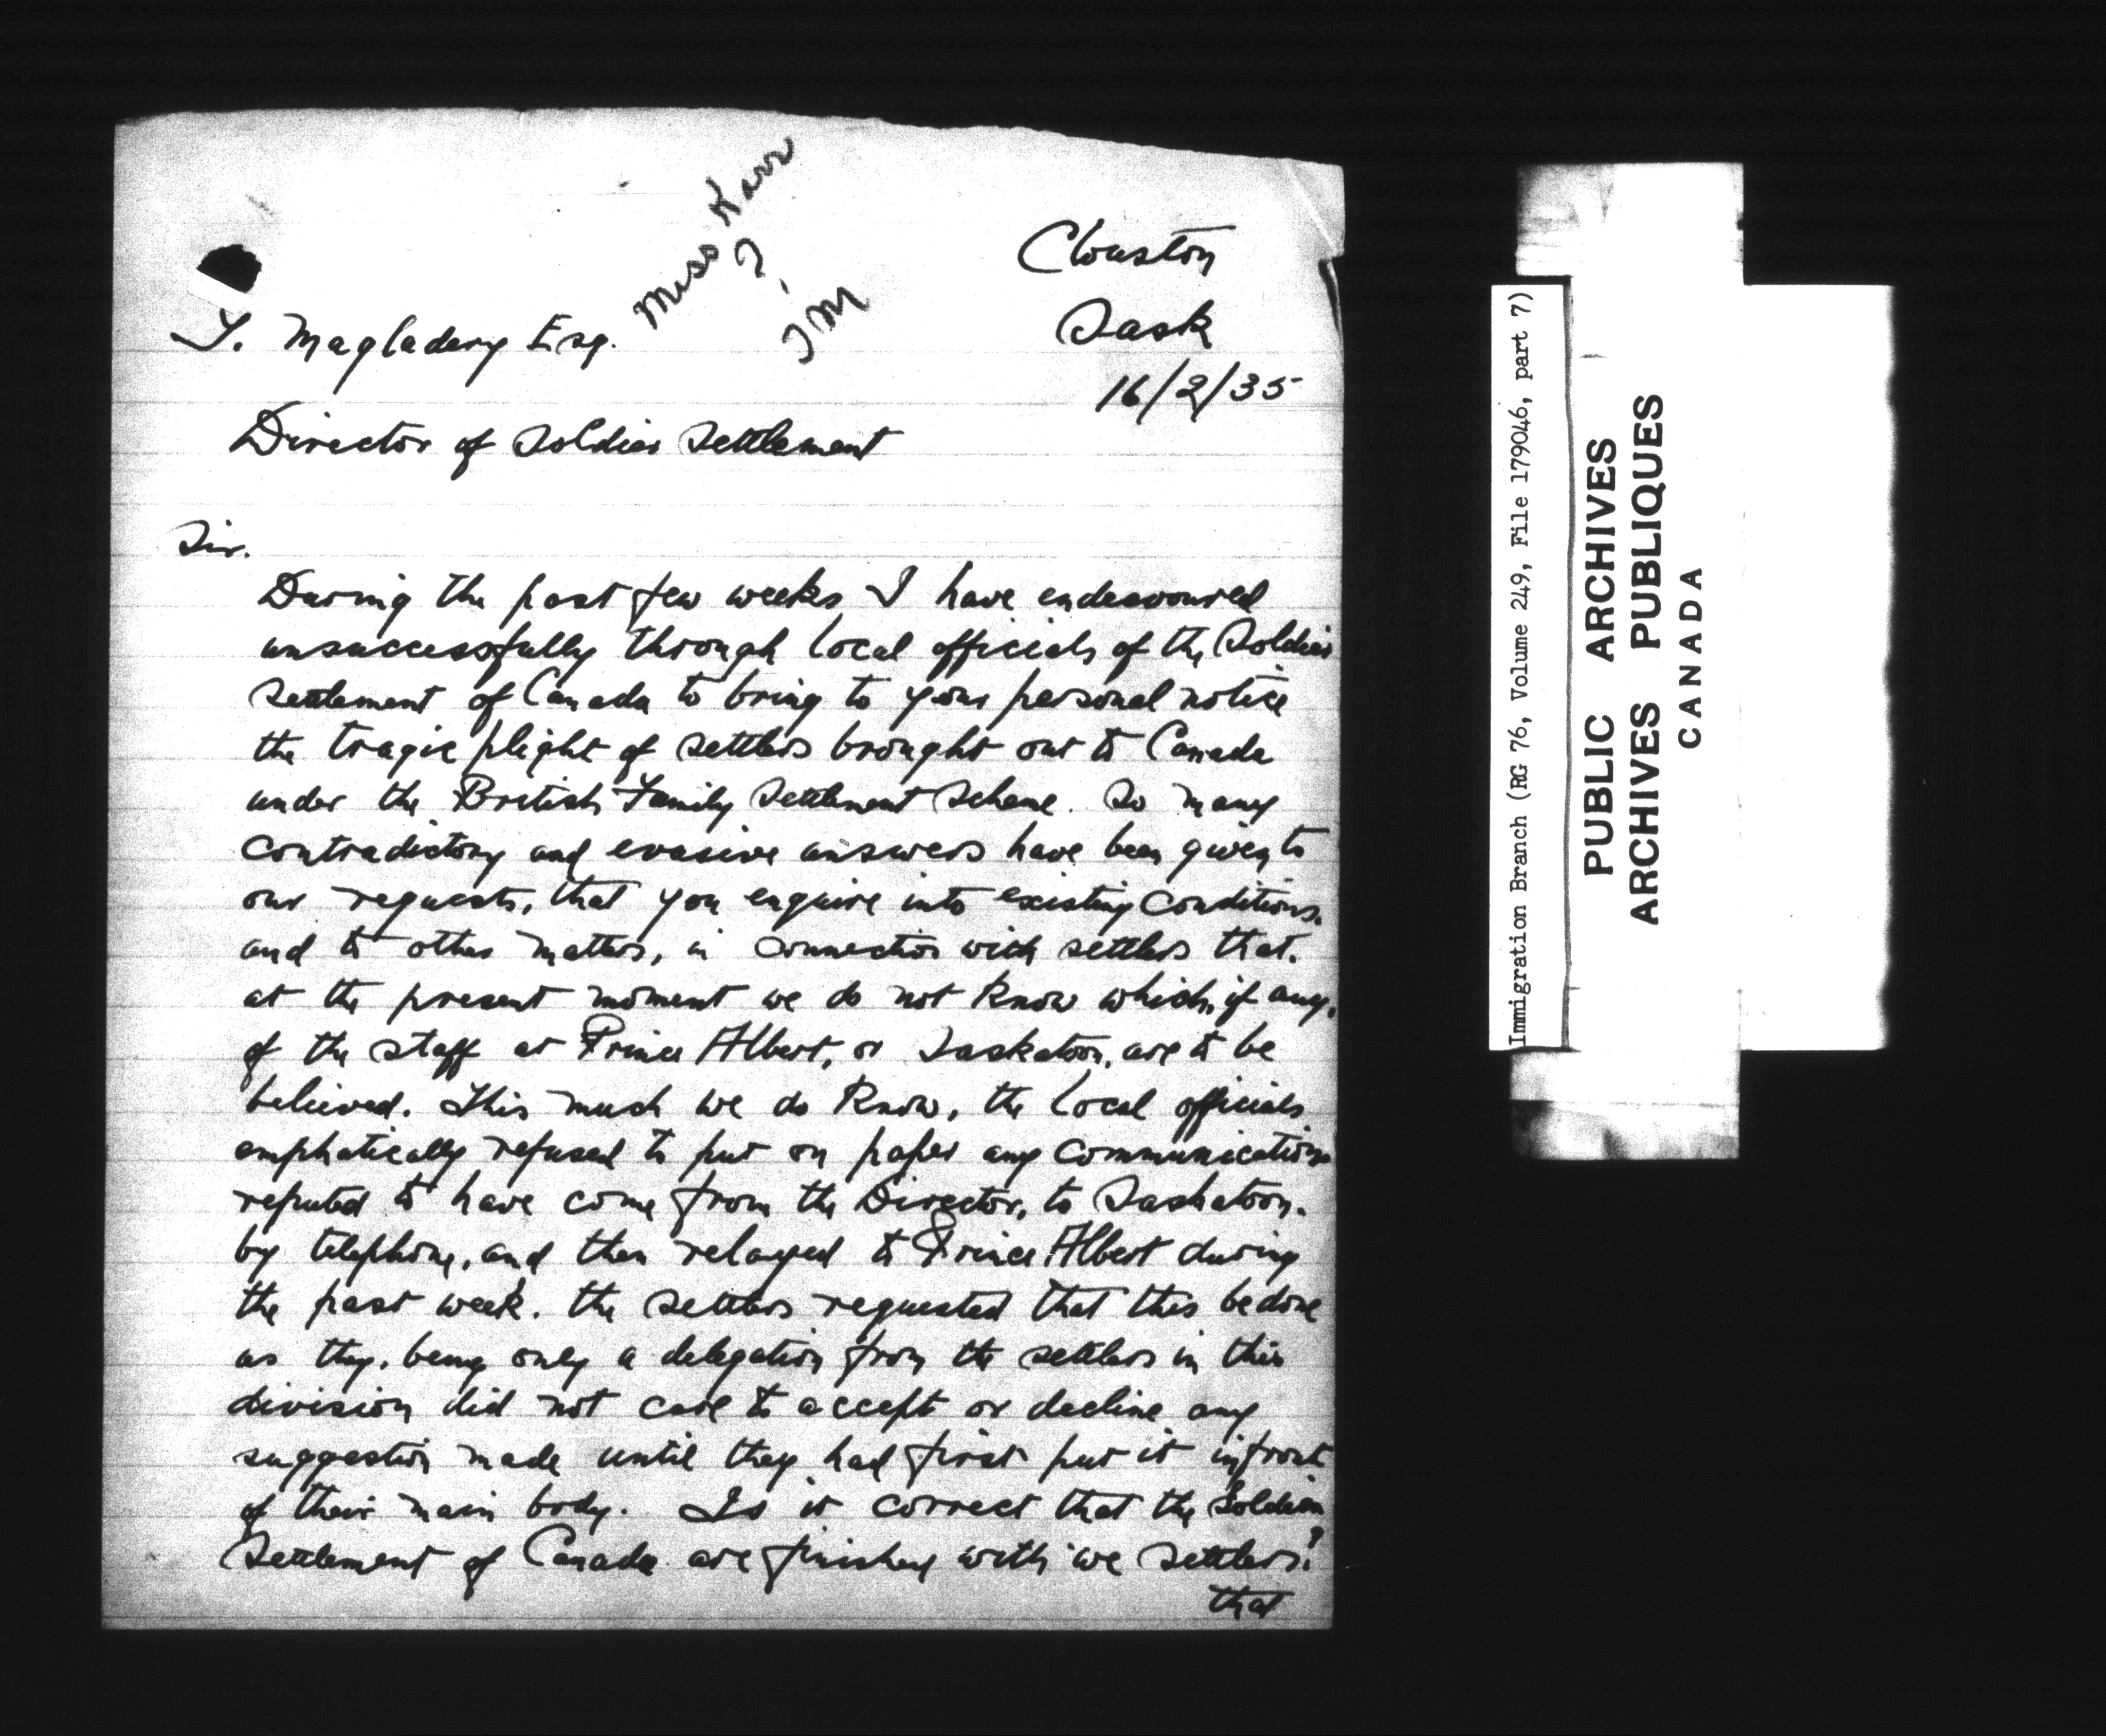 Miss Karr
?
JM
Clouston
Sask
16/2/35
T. Magladery Esq.
Director of Soldier Settlement
Sir.
During the past few weeks I have endeavoured
unsuccessfully through local officials of the Soldier
Settlement of Canada to bring to your personal notice
the tragic plight of settlers brought out to Canada
under the British Family Settlement Scheme. So many
contradictory and evasive answers have been given to
our requests, that you enquire into existing conditions.
and to other matters, in connection with settlers that.
at the present moment we do not know which, if any,
of the staff at Prince Albert, or Saskatoon, are to be
believed. This much we do know, the local officials
emphatically refused to put on paper any communications
reputed to have come from the Director, to Saskatoon.
by telephone, and then relayed to Prince Albert during
the past week. The settlers requested that this be done
as they, being only a delegation from the settlers in this
division did not care to accept or decline any
suggestion made until they had first put it infront
of their main body. Is it correct that the Soldier
Settlement of Canada are finished with we settlers?
that
Immigration Branch (RG 76, Volume 249, File 179046, part 7)
PUBLIC ARCHIVES
ARCHIVES PUBLIQUES
CANADA